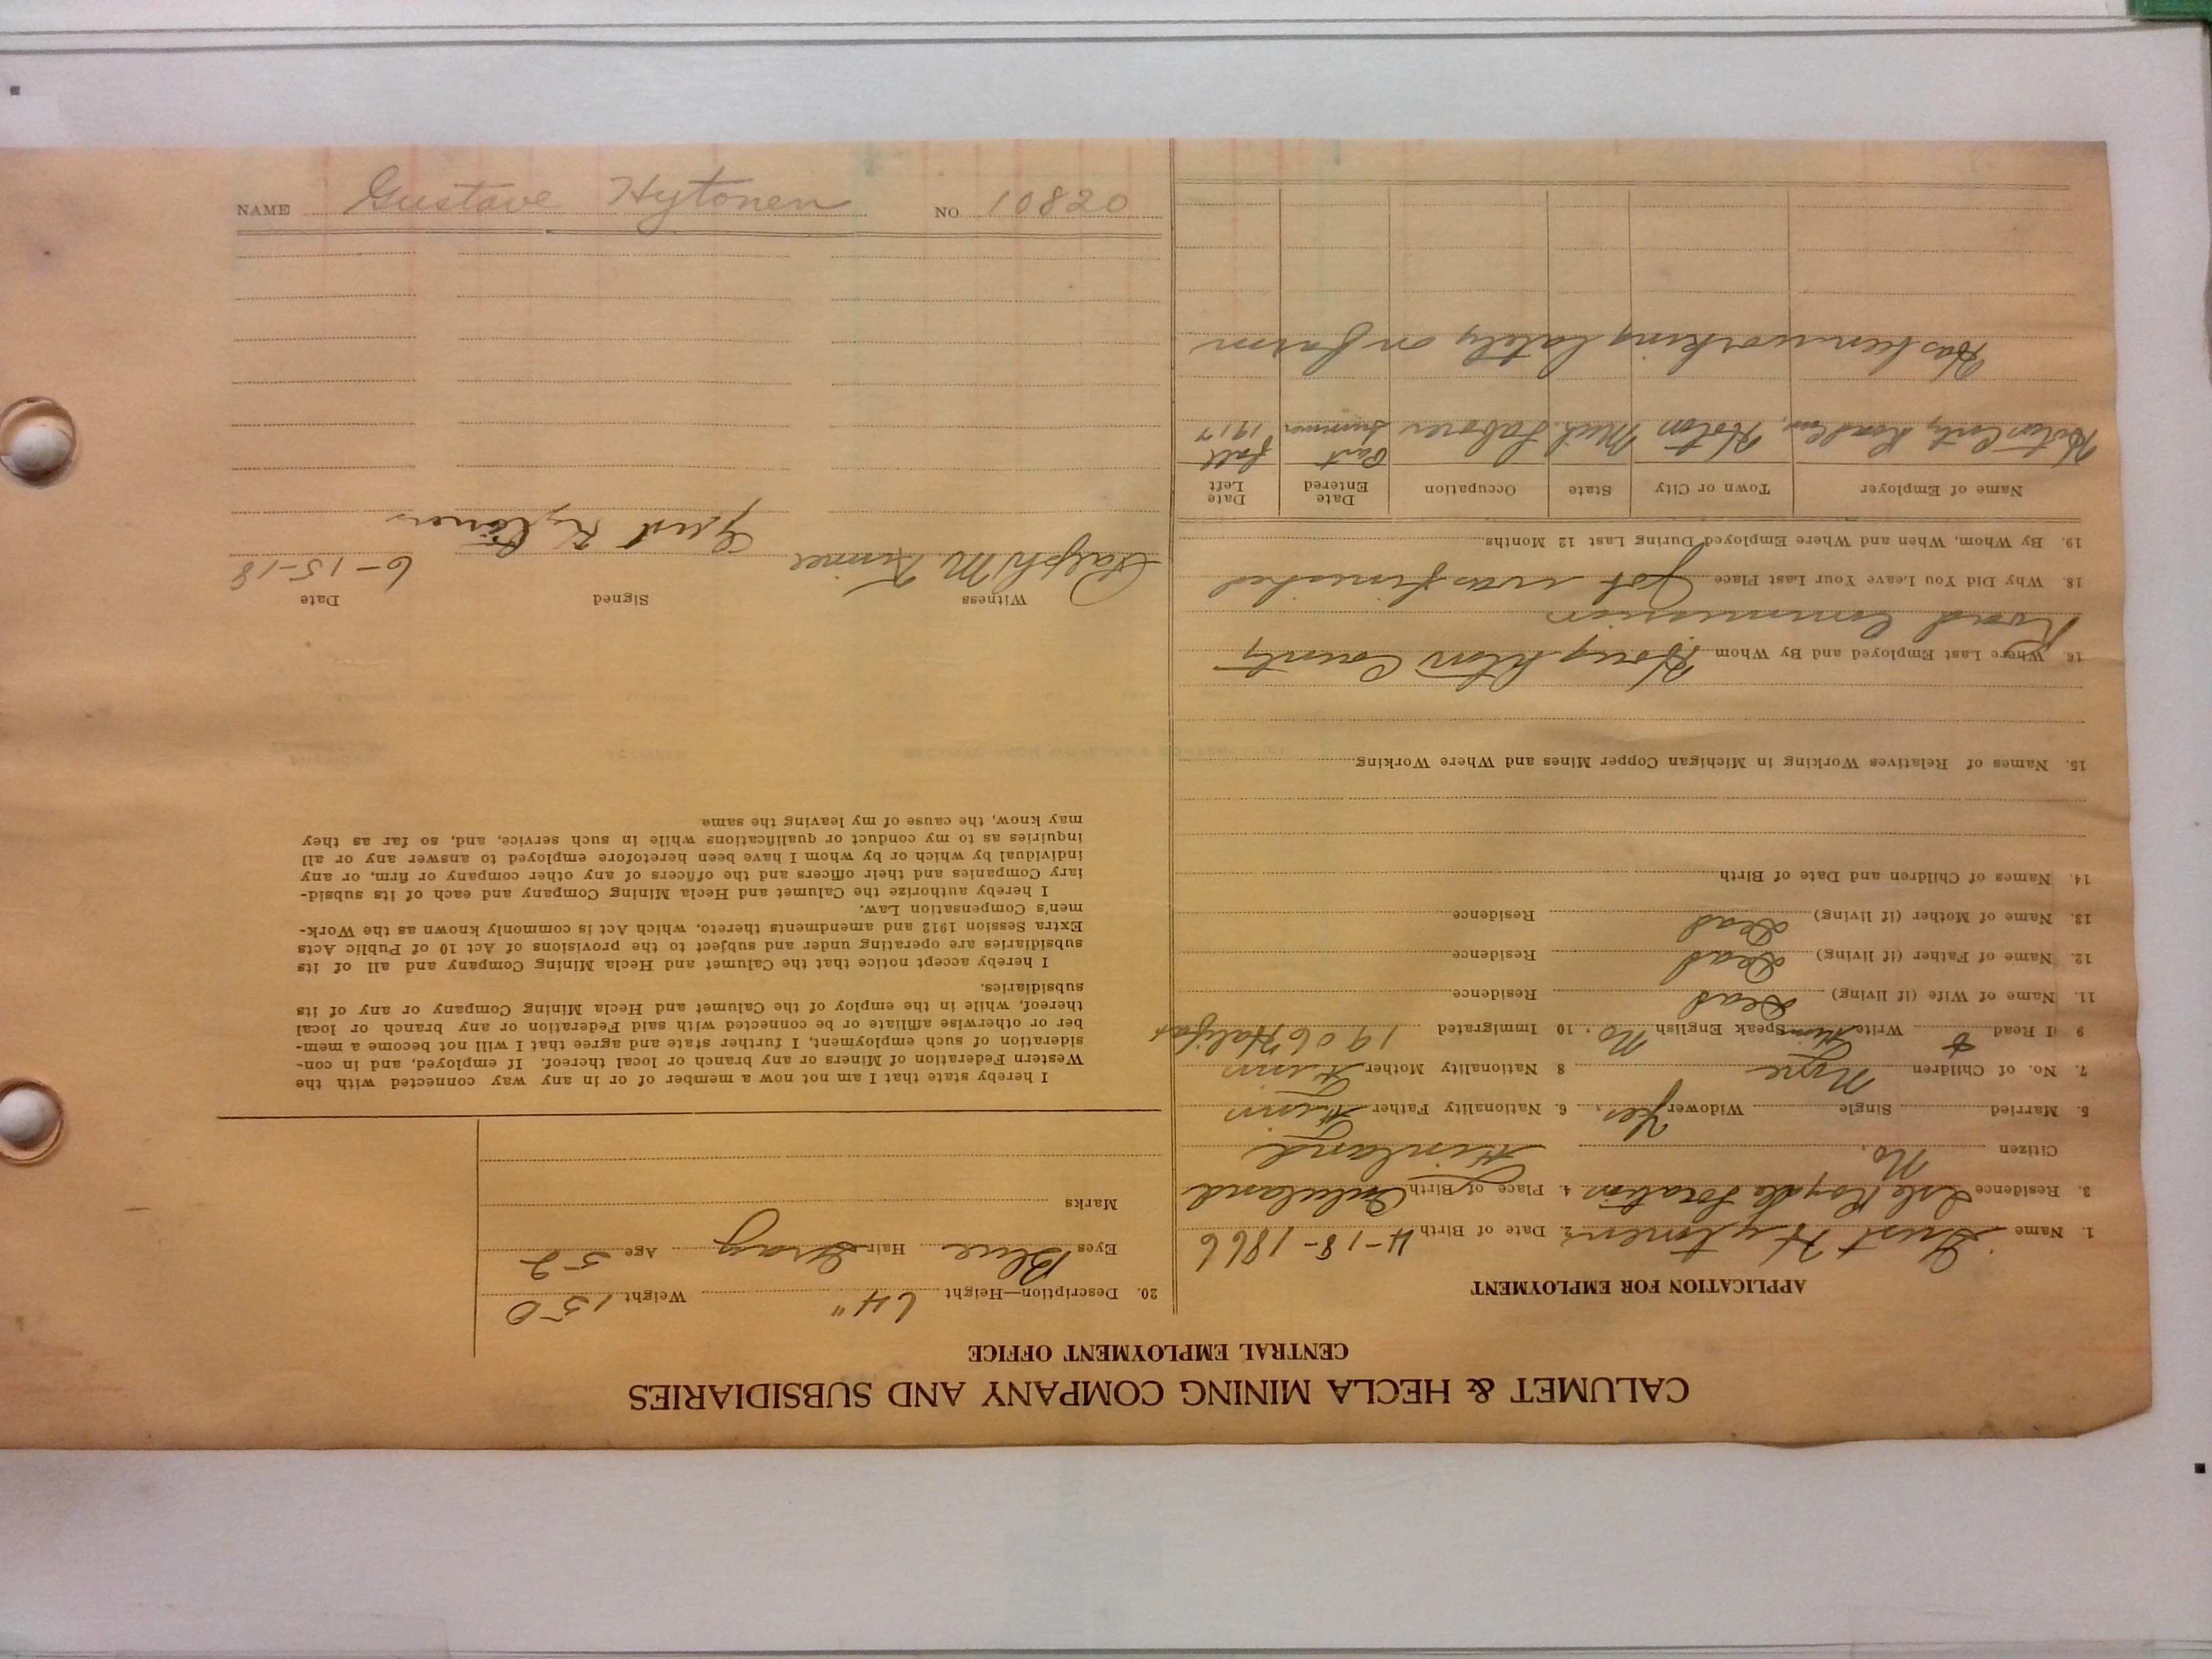 CALUMET & HECLA MINING COMPANY AND SUBSIDIARIES
CENTRAL EMPLOYMENT OFFICE
APPLICATION FOR EMPLOYMENT
1. Name Gust Hytonen 2. Date of Birth 4-18-1866
3. Residence Isle Royale Location 4. Place of Birth
Citizen No. Finland
5. Married Single Widower Yes. 6. Nationality Father Finn
7. No. of Children None 8 Nationality Mother Finn
9 I Read & Write Finn Speak English No. 10 Immigrated 1906 Halifax
11. Name of Wife (if living) Dead Residence
12. Name of Father (if living) Dead Residence
13. Name of Mother (if living) Dead Residence
14. Names of Children and Date of Birth
15. Names of Relatives Working in Michigan Copper Mines and Where Working.
16. Where Last Employed and By Whom Houghton County
Road Commission
18. Why Did You Leave Your Last Place Job was finished
19. By Whom, When and Where Employed During Last 12 Months.
Name of Employer Town or City State Occupation Date Entered Date Left
Hoton Cnty Road Com, Hoton Mich. Laborer Part Summer fall 1917
Has been working lately on farm
20. Description—Height 64" Weight 150
Eyes Blue Hair Gray Age 52
Marks
I hereby state that I am not now a member of or in any way connected with the
Western Federation of Miners or any branch or local thereof. If employed, and in con-
sideration of such employment, I further state and agree that I will not become a mem-
ber or otherwise affiliate or be connected with said Federation or any branch or local
thereof, while in the employ of the Calumet and Hecla Mining Company or any of its
subsidiaries.
I hereby accept notice that the Calumet and Hecla Mining Company and all of its
subsidiaries are operating under and subject to the provisions of Act 10 of Public Acts
Extra Session 1912 and amendments thereto, which Act is commonly known as the Work-
men's Compensation Law.
I hereby authorize the Calumet and Hecla Mining Company and each of its subsid-
iary Companies and their officers and the officers of any other company or firm, or any
individual by which or by whom I have been heretofore employed to answer any or all
inquiries as to my conduct or qualifications while in such service, and, so far as they
may know, the cause of my leaving the same
Witness Signed Date
Ralph M Gust Hytönen 6-15-18
NAME Gustave Hytonen NO. 10820